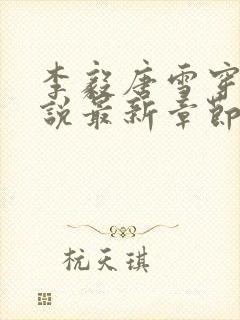 李毅唐雪穿
说最新章节
杭天琪